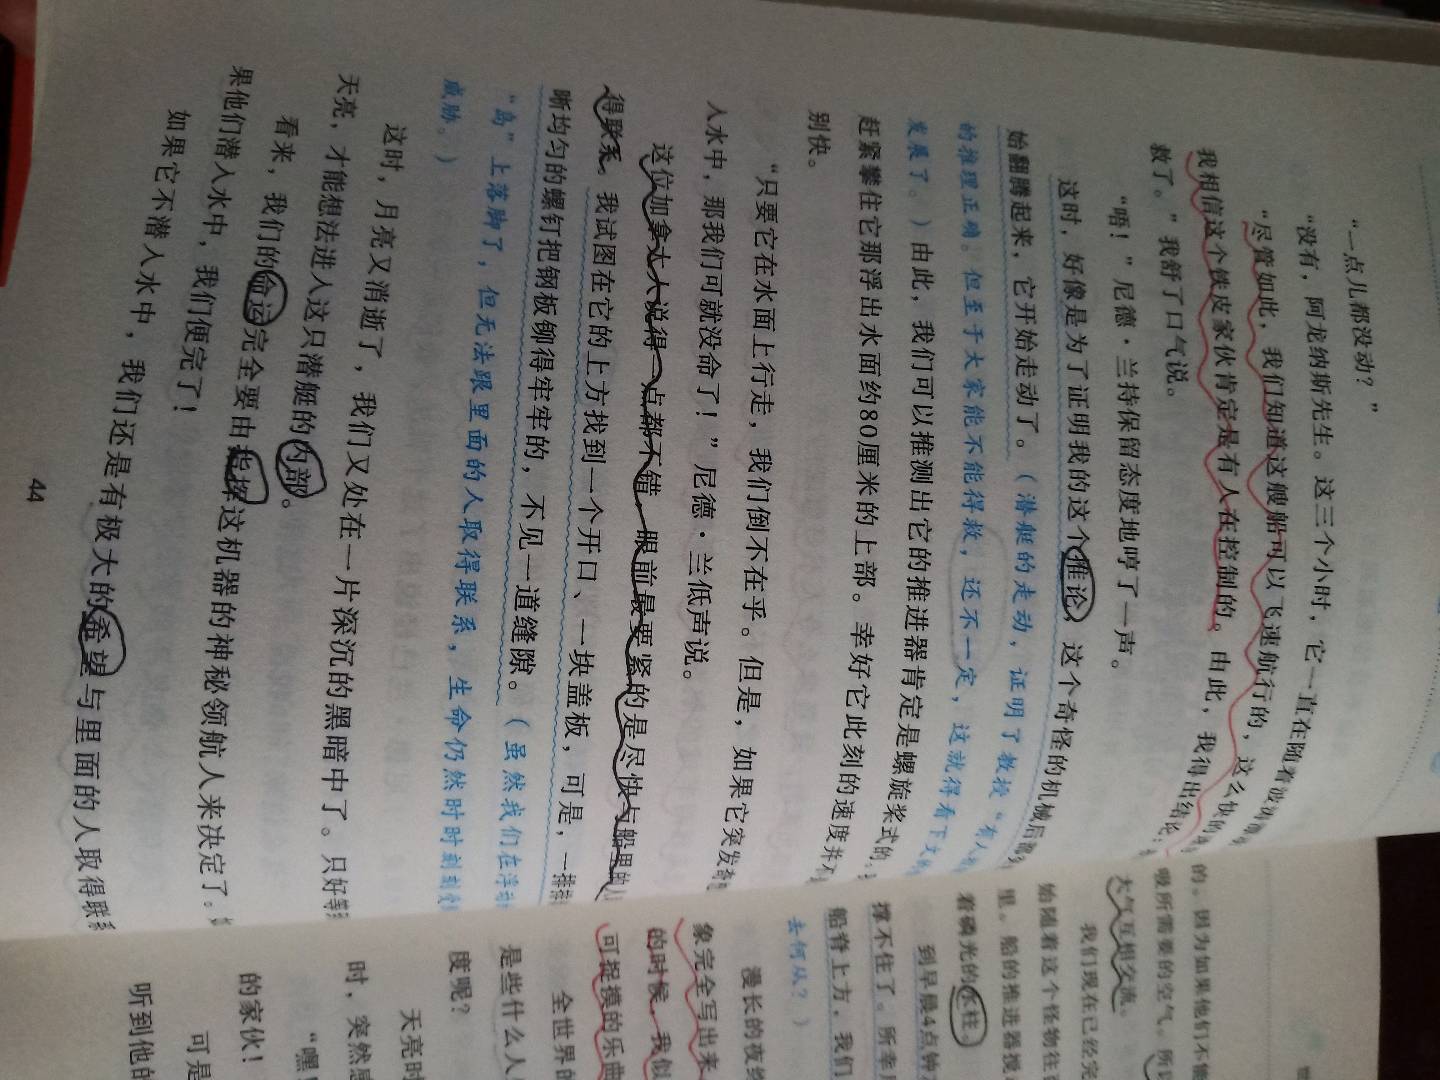 “一点儿都没动？”
“没有，阿龙纳斯先生。这三个小时，它一直在随着波涛
“尽管如此，我们知道这艘船可以飞速航行的，这么快的
我相信这个铁皮家伙肯定是有人在控制的。由此，我得出结论：
救了。”我舒了口气说。
“唔！”尼德·兰持保留态度地哼了一声。
这时，好像是为了证明我的这个推论，这个奇怪的机械后
始翻腾起来，它开始走动了。（潜艇的走动，证明了教授“有人
的推理正确。但至于大家能不能得救，还不一定，这就得看下文
发展了。）由此，我们可以推测出它的推进器肯定是螺旋桨式的。
赶紧攀住它那浮出水面约80厘米的上部。幸好它此刻的速度并不
别快。
“只要它在水面上行走，我们倒不在乎。但是，如果它突发奇
入水中，那我们可就没命了！”尼德·兰低声说。
这位加拿大人说得一点都不错，眼前最要紧的是尽快与船里的人
得联系。我试图在它的上方找到一个开口、一块盖板，可是，一排排
晰均匀的螺钉把钢板铆得牢牢的，不见一道缝隙。（虽然我们在浮动
“岛”上落脚了，但无法跟里面的人取得联系，生命仍然时时刻刻受
威胁。）
这时，月亮又消逝了，我们又处在一片深沉的黑暗中了。只好等
天亮，才能想法进入这只潜艇的内部。
看来，我们的命运完全要由指挥这机器的神秘领航人来决定了。如
果他们潜入水中，我们便完了！
如果它不潜入水中，我们还是有极大的希望与里面的人取得联系
44
的。因为如果他们不能
吸所需要的空气。所以
大气互相交流。
我们现在已经完
始随着这个怪物往
里。船的推进器搅
着磷光的水柱。
到早晨4点钟
撑不住了。所幸
船脊上方，我们
去何从？）
漫长的夜终
象完全写出来
的时候，我似
可捉摸的乐曲
全世界的
是些什么人
度呢？
天亮时
时，突然感
“嘿！
的家伙！
可是
听到他的